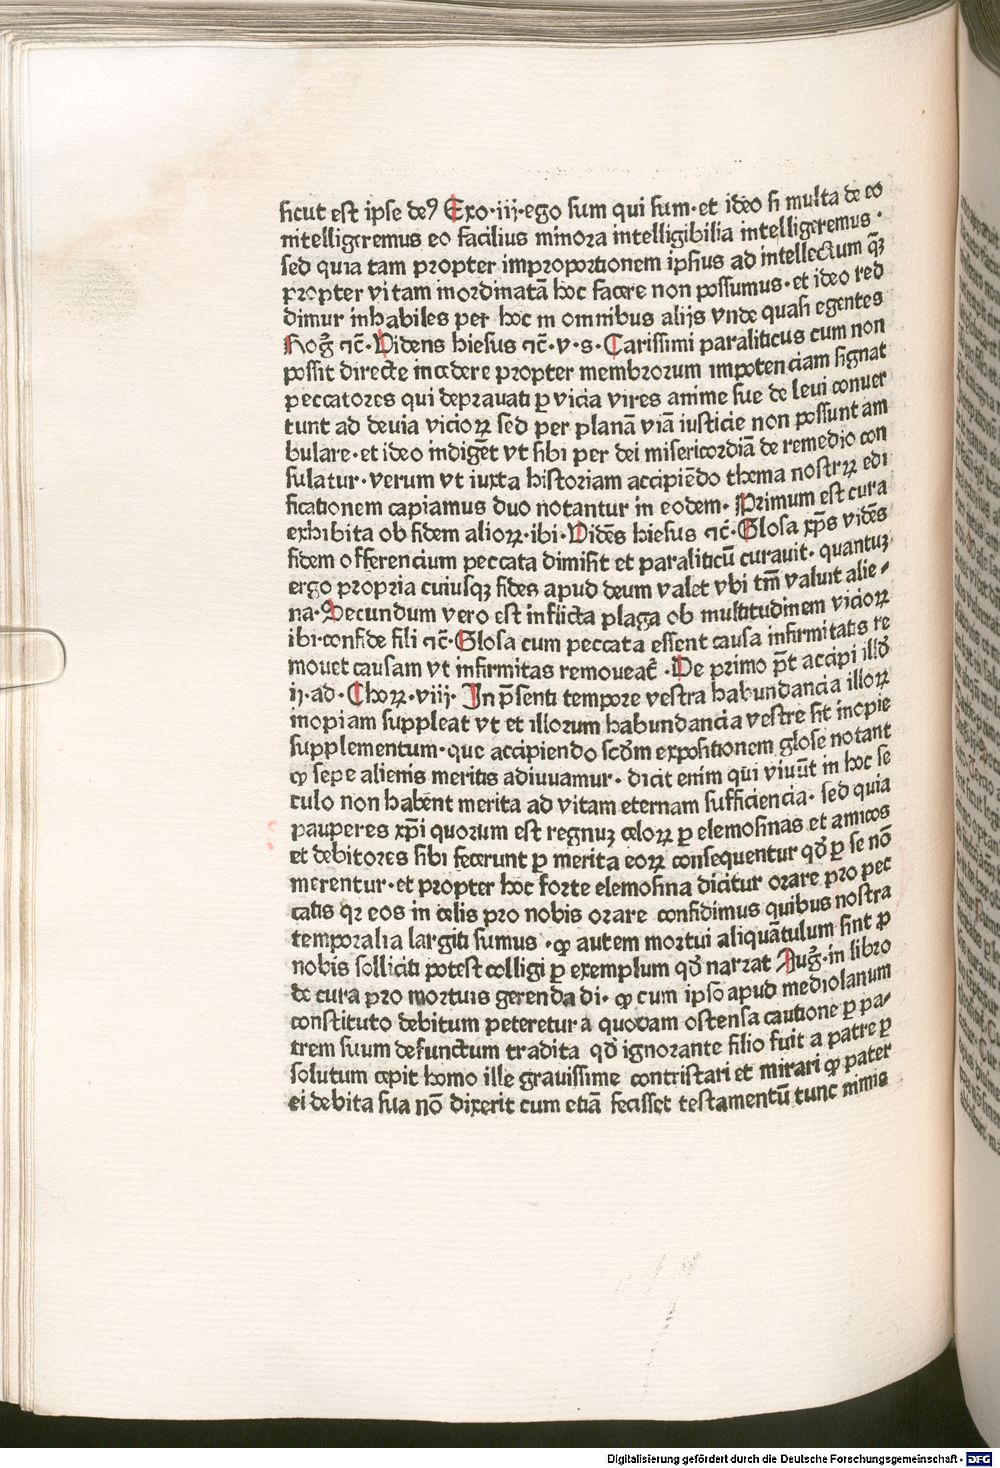 sicut est ipse deꝰ Exo·iij·ego sum qui sum·et ideo si multa de eo
intelligeremus eo facilius minora intelligibilia intelligeremus·
sed quia tam propter improportionem ipsius ad intellectum qꝫ̄
propter vitam inordinatā hoc facere non possumus·et ideo red
dimur inhabiles per hoc in omnibus alijs vnde quasi egentes
Rog̃ ⁊c̄·Videns hiesus ⁊c̄·v·s·Carissimi paraliticus cum non
possit directe incedere propter membrorum impotenciam signat
peccatores qui depravati ꝑ vicia vires anime sue de levi conver
tunt ad devia vicioꝝ sed per planā viā iusticie non possunt am
bulare·et ideo indigēt vt sibi per dei misericordiā de remedio con
sulatur·verum vt iuxta historiam accipiēdo thema nostrꝝ edi
ficationem capiamus duo notantur in eodem·Primum est cura
exhibita ob fidem alioꝝ·ibi·Vidēs hiesus ⁊c̄·Glosa xp̄s vidēs
fidem offerencium peccata dimisit et paraliticū curavit·quantuꝫ
ergo propria cuiusqꝫ fides apud deum valet vbi tm̄ valuit alie⸗
na·Secundum vero est inflicta plaga ob multitudinem vicioꝝ
ibi·confide fili ⁊c̄·Glosa cum peccata essent causa infirmitatis re
movet causam vt infirmitas removeat᷑·De primo p̄t accipi illd̄
ij·ad·Choꝝ·viij·In p̄senti tempore vestra habundancia illoꝝ
inopiam suppleat vt et illorum habundancia vestre sit inopie
supplementum·que accipiendo scd̄m expositionem glose notant
ꝙ sepe alienis meritis adiuvamur·dicit enim qui vivūt in hoc se
culo non habent merita ad vitam eternam sufficiencia·sed quia
pauperes xp̄i quorum est regnuꝫ celoꝝ ꝑ elemosinas et amicos
et debitores sibi fecerunt ꝑ merita eoꝝ consequentur qd̄ ꝑ se nō
merentur·et propter hoc forte elemosina dicitur orare pro pec
catis qꝛ eos in celis pro nobis orare confidimus quibus nostra
temporalia largiti sumus·ꝙ autem mortui aliquātulum sint ꝓ
nobis solliciti potest colligi ꝑ exemplum qd̄ narrat Aug̃·in libro
de cura pro mortuis gerenda di·ꝙ cum ipso apud mediolanum
constituto debitum peteretur a quodam ostensa cautione ꝑ pa⸗
trem suum defunctum tradita qd̄ ignorante filio fuit a patre ꝑ
solutum cepit homo ille gravissime contristari et mirari ꝙ pater
ei debita sua nō dixerit cum etiā fecisset testamentū tunc nimis
Digitalisierung gefördert durch die Deutsche Forschungsgemeinschaft - DFG